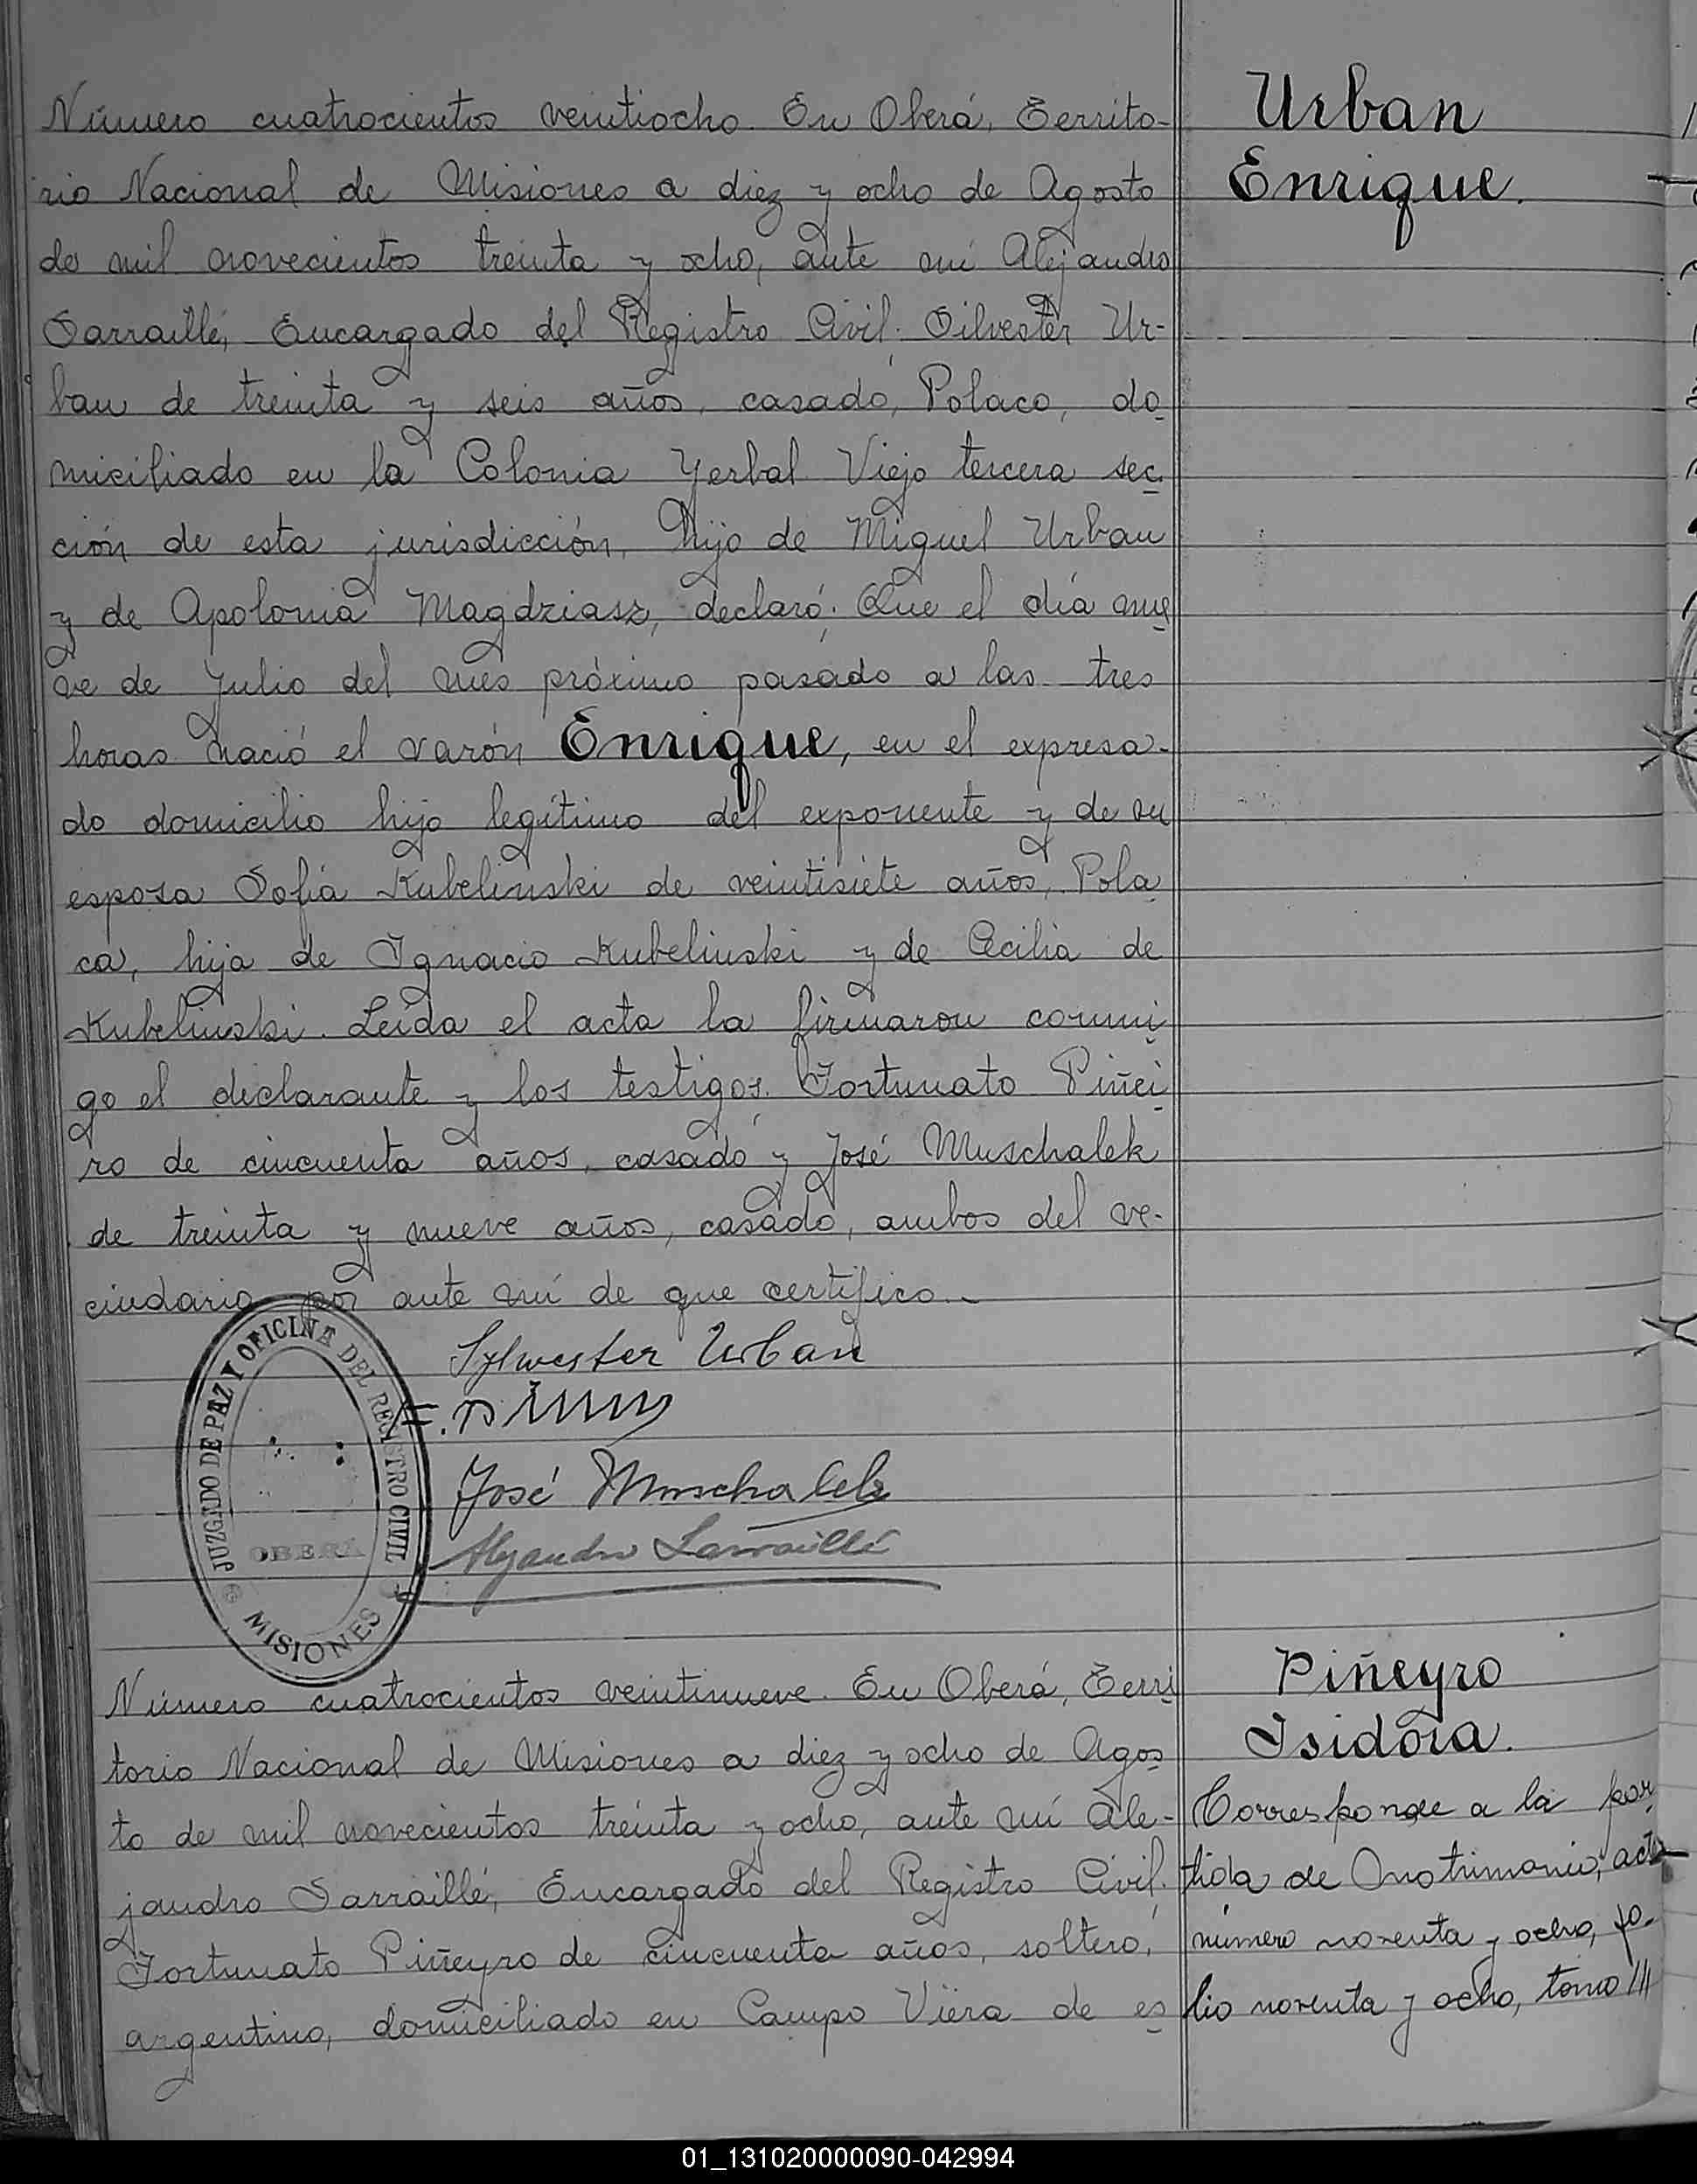 Número cuatrocientos veintiocho. En Oberá, Territo-
rio Nacional de Misiones a diez y ocho de Agosto
de mil novecientos treinta y ocho, ante mí Alejandro
Sarraillé, Encargado del Registro Civil: Silvester Ur-
ban de treinta y seis años, casado, Polaco, do
miciliado en la Colonia Yerbal Viejo tercera sec
ción de esta jurisdicción, hijo de Miguel Urban
y de Apolonia Magdziasz, declaró: Que el día nue
ve de Julio del mes próximo pasado a las tres
horas nació el varón Enrique, en el expresa-
do domicilio hijo legítimo del exponente y de su
esposa Sofía Kubelinski de veintisiete años, Pola
ca, hija de Ignacio Kubelinski y de Cecilia de
Kubelinski. Leída el acta la firmaron conmi
go el declarante y los testigos: Fortunato Piñei
ro de cincuenta años, casado y José Muschalek
de treinta y nueve años, casado, ambos del ve-
cindario por ante mí de que certifico.-
Urban
Enrique.
Sylwester Urban
José Muschalek
Alejandro Sarraillé
JUZGADO DE PAZ Y OFICINA DEL REGISTRO CIVIL
OBERÁ
MISIONES
Número cuatrocientos veintinueve. En Oberá, Terri
torio Nacional de Misiones a diez y ocho de Agos
to de mil novecientos treinta y ocho, ante mí Ale-
jandro Sarraillé, Encargado del Registro Civil:
Fortunato Piñeyro de cincuenta años, soltero,
argentino, domiciliado en Campo Viera de es
Piñeyro
Isidora.
Corresponde a la par
tida de Matrimonio, acta
número noventa y ocho, fo-
lio noventa y ocho, tomo III
01_131020000090-042994